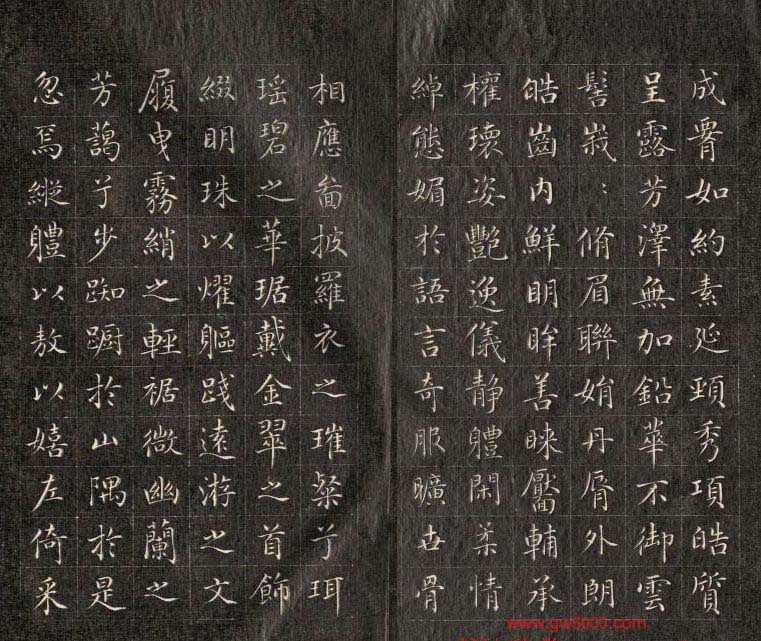 成如約素延頸秀項皓質
呈露芳澤無加鉛華不御雲
髻峩：脩眉聯娟丹脣外朗
皓齒内鮮明眸善睞靨輔承
權瓌姿豔逸儀靜軆閑柔情
綽態媚於語言奇服曠世骨
相應啚披羅衣之璀粲兮珥
瑶碧之華琚戴金翠之首飾
綴明珠以耀軀踐遠游之文
履曳霧綃之輕裾微幽蘭之
芳藹兮步踟躕於山隅於是
忽焉縱軆以敖以嬉左倚采
www.gw5000.com